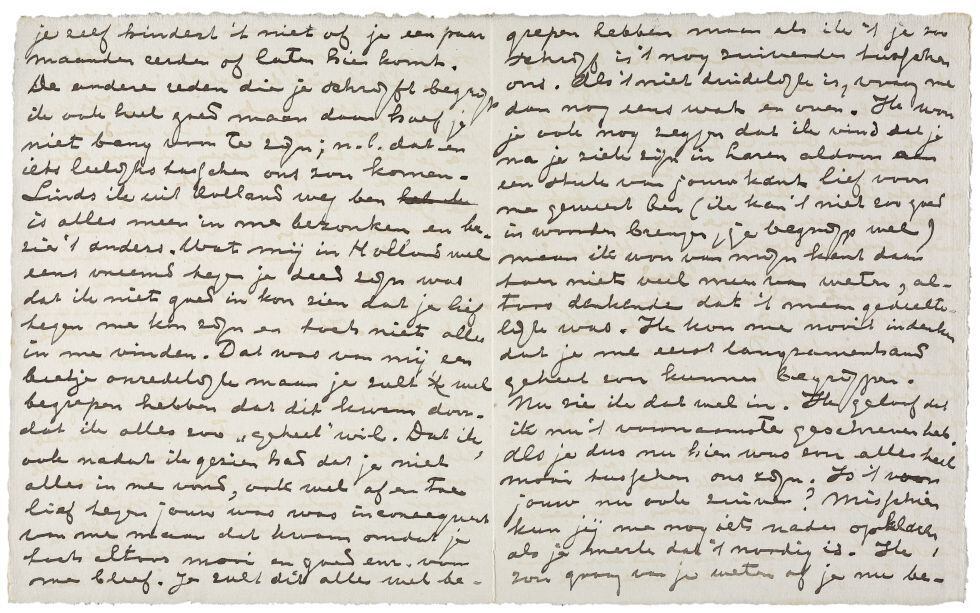 je zelf hindert 't niet of je een paar
maanden eerder of later hier komt.
De andere reden die je schrijft begrijp
ik ook heel goed maar daar hoef je
niet bang voor te zijn; n.l. dat er
iets leelijks tusschen ons zou komen.
Sinds ik uit Holland weg ben
is alles meer in me bezonken en be-
zie 't anders. Wat mij in Holland wel
eens vreemd tegen je deed zijn was
dat ik niet goed in kon zien dat je lief
tegen me kon zijn en toch niet alles
in me vinden. Dat was van mij een
beetje onredelijk maar je zult wel
begrepen hebben dat dit kwam door-
dat ik alles zoo „geheel" wil. Dat ik,
ook nadat ik gezien had dat je niet
alles in me vond, ook wel af en toe
lief tegen jouw was was inconsequent
van me maar dat kwam omdat je
toch altoos mooi en goed enz. voor
me bleef. Je zult dit alles wel be-
grepen hebben maar als ik 't je zoo
schrijf is 't nog zuiverder tusschen
ons. Als 't niet duidelijk is, vraag me
dan nog eens wat en over. Ik wou
je ook nog zeggen dat ik vind dat je
na je ziek zijn in Laren aldoor
een stuk van jouw kant lief voor
me geweest ben (ik kan 't niet zoo goed
in woorden brengen, je begrijp wel)
maar ik wou van mijn kant daar
toen niet veel meer van weten, al-
toos denkende dat 't maar gedeelte-
lijk was. Ik kon me nooit indenken
dat je me eerst langzamerhand
geheel zou kunnen begrijpen.
Nu zie ik dat wel in. Ik geloof dat
ik nu 't voornaamste geschreven heb.
Als je dus nu hier was zou alles heel
mooi tusschen ons zijn. Is 't voor
jouw nu ook zuiver? Misschien
kun je me nog iets nader opklaren,
als je merkt dat 't noodig is. Ik
zou graag van je weten of je nu be-